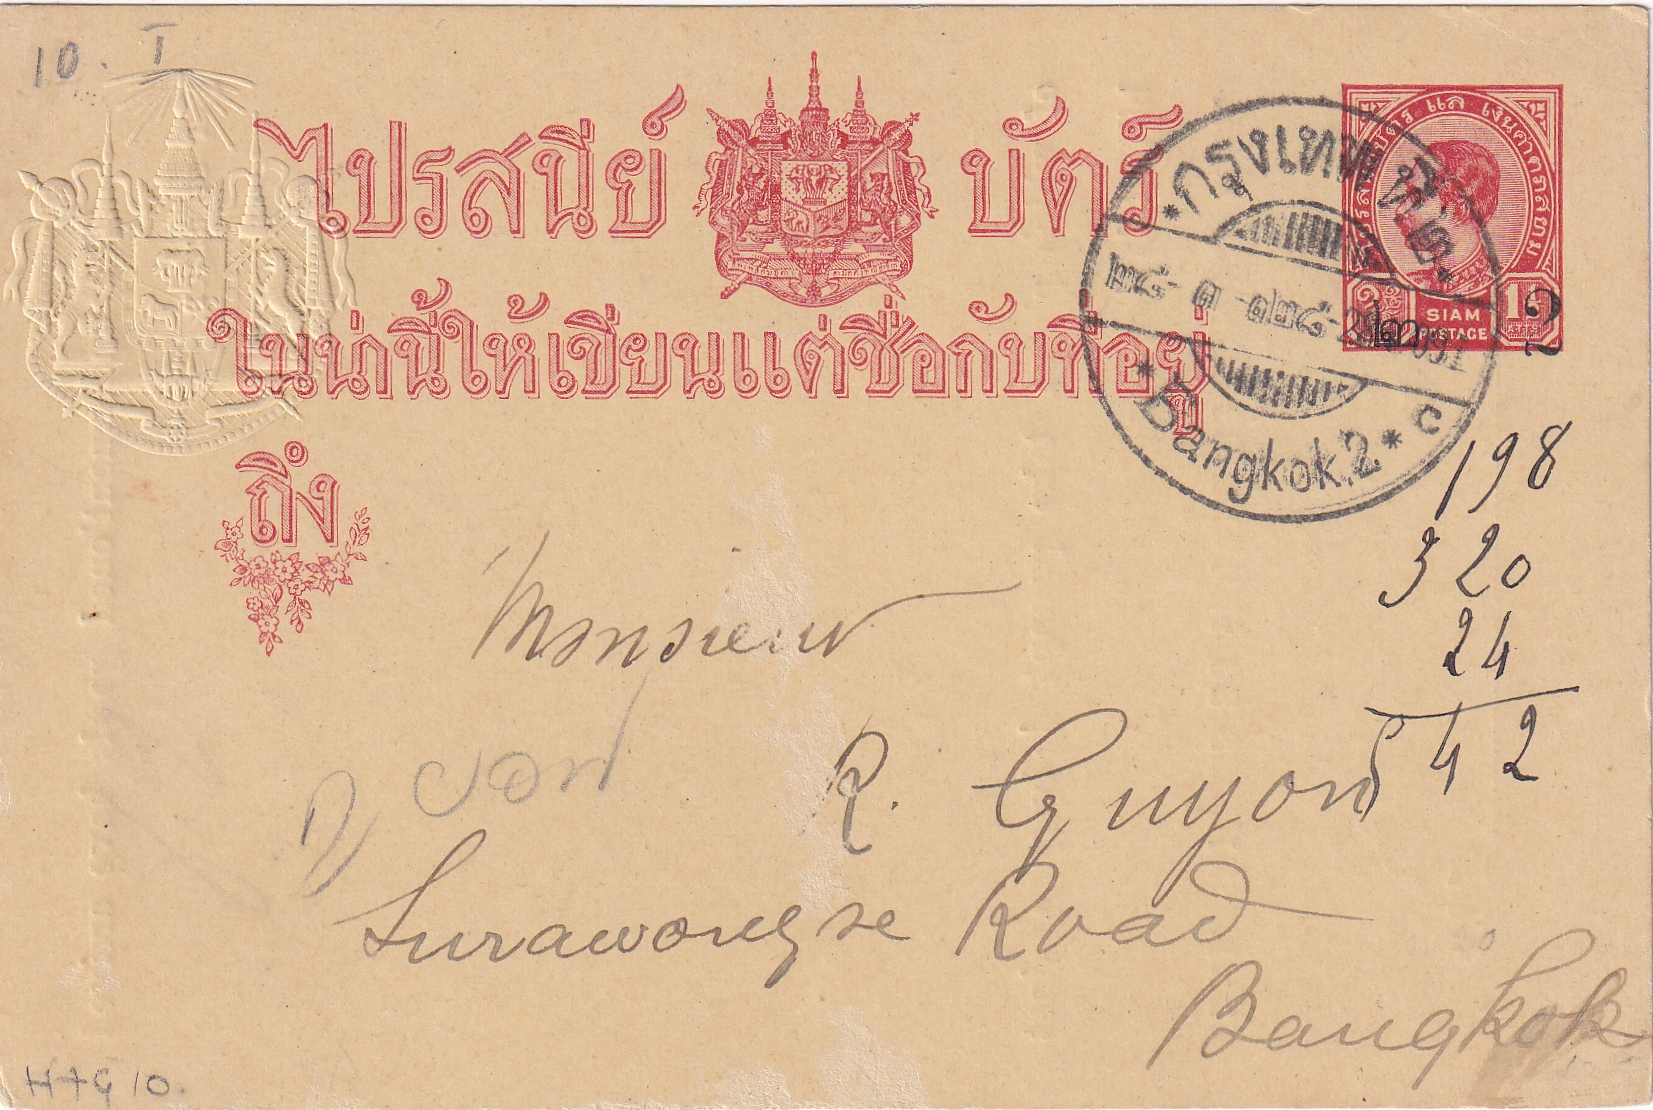 10. I
ไปรสนีย์ บัตร์
ในน่านี้ให้เขียนแต่ชื่อกับที่อยู่
ถึง
SIAM
POSTAGE
ATTS
2
กรุงเทพ ที่๒
Bangkok.2
C
198
320
24
542
Monsieur
R. Guyon
Surawongse Road
Bangkok
H+G 10.